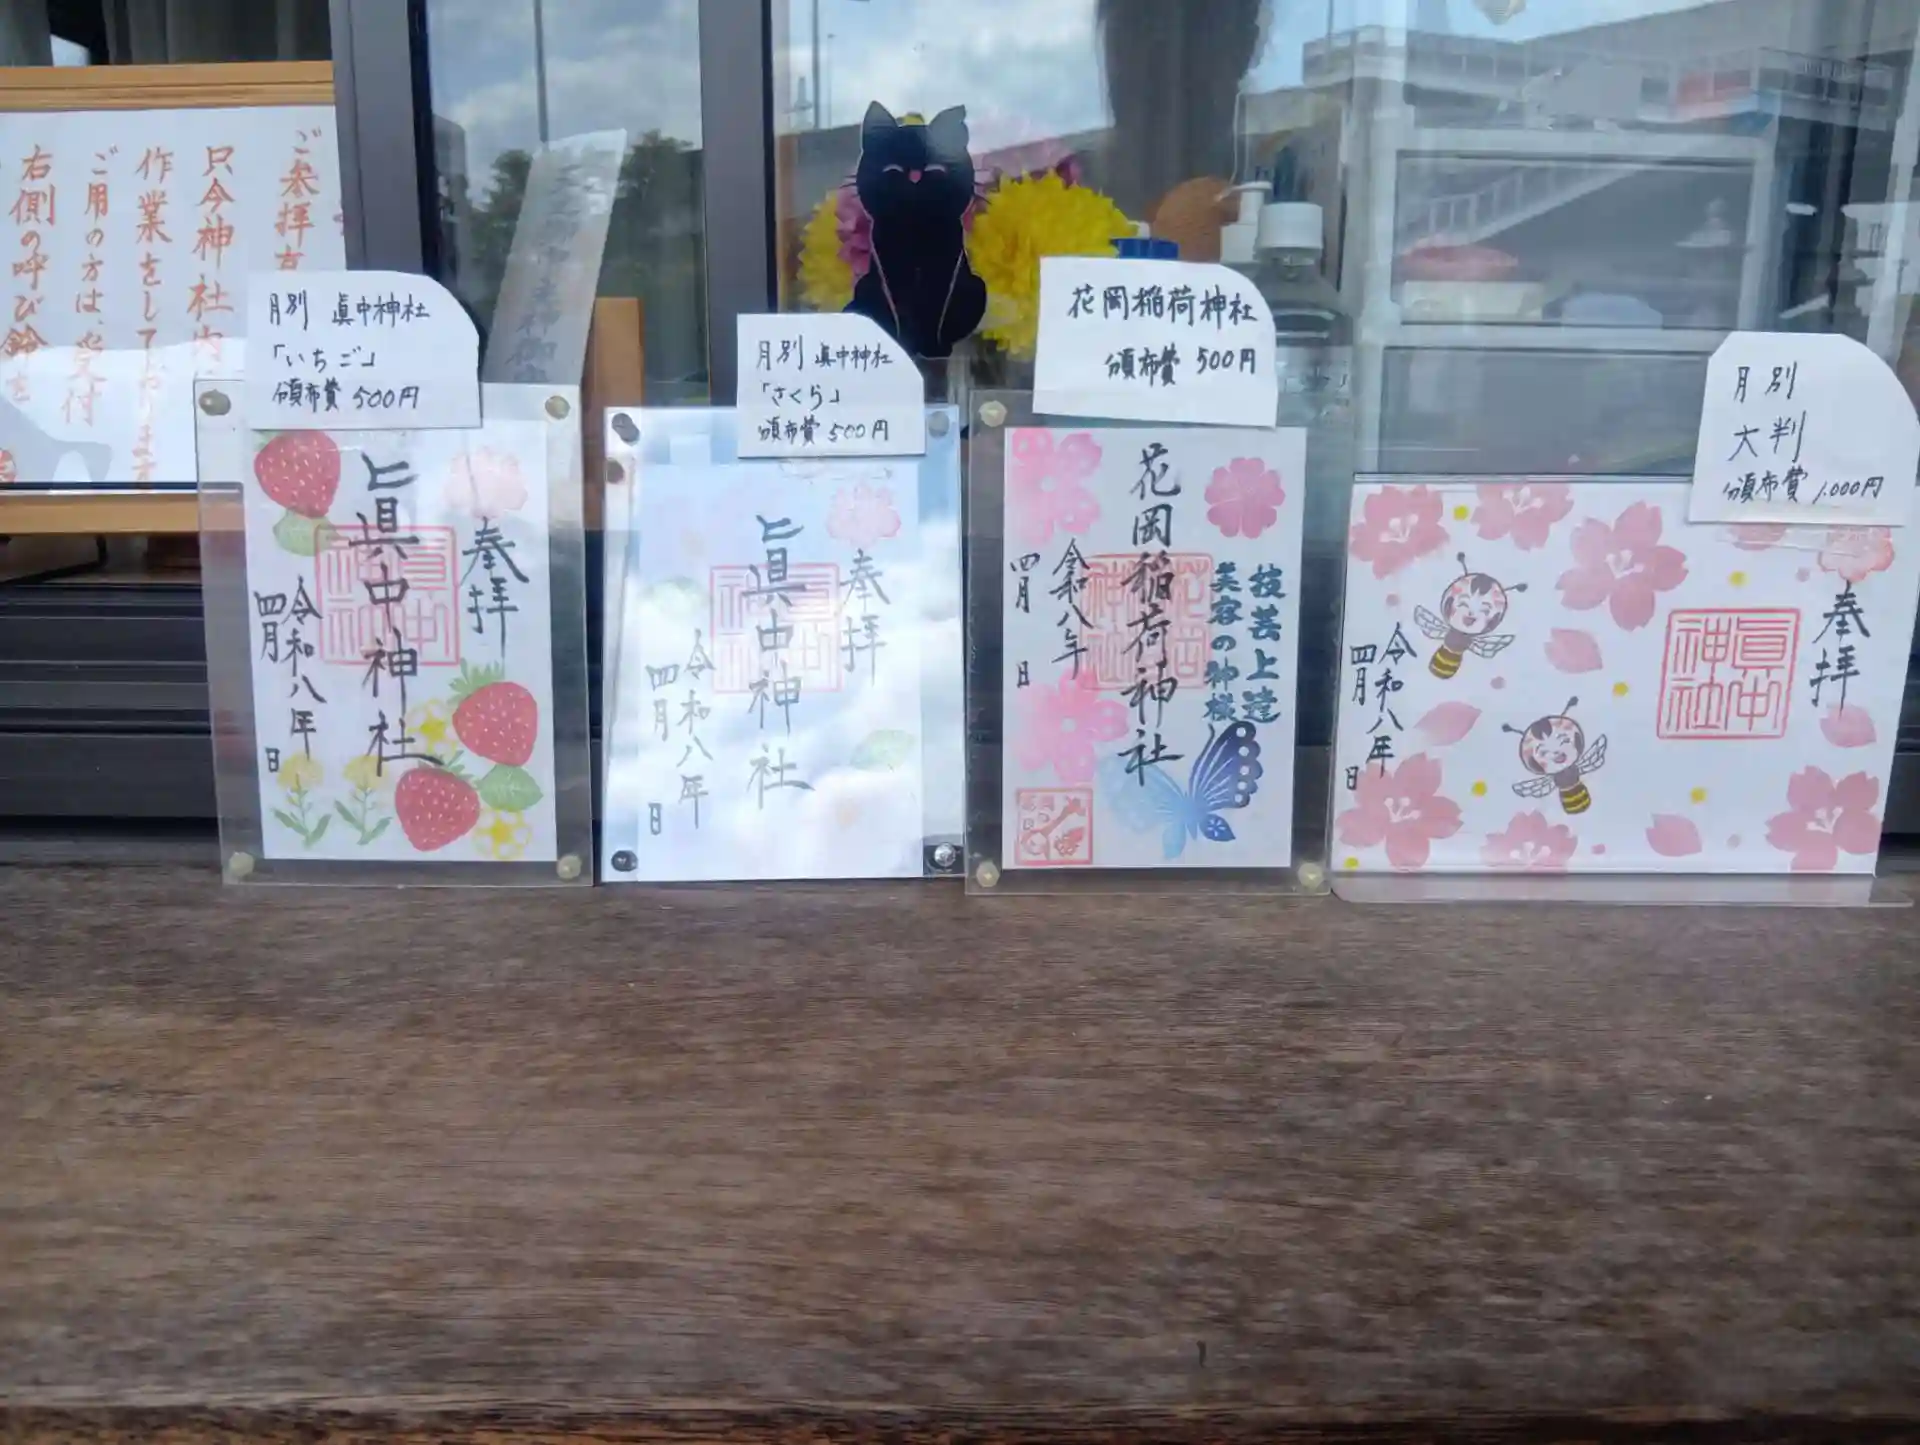 ご参拝
只今神社内
作業をしており
ご用の方は、受付
右側の呼び鈴を
月別 眞中神社
「いちご」
頒布費 500円
奉拝
眞中神社
眞中神社
令和八年
四月 日
月別 眞中神社
「さくら」
頒布費 500円
奉拝
眞中神社
眞中神社
令和八年
四月 日
花岡稲荷神社
頒布費 500円
技芸上達
美容の神様
花岡稲荷神社
令和八年
四月 日
月別
大判
頒布費 1,000円
奉拝
眞中神社
令和八年
四月 日